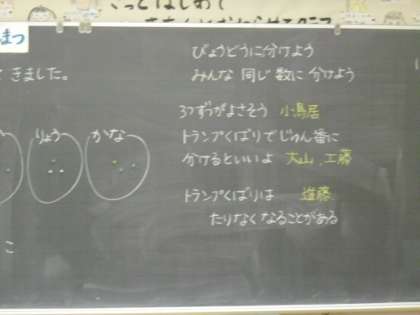 まつ
きました。
りょう
かな
びょうどうに分けよう
みんな 同じ数に 分けよう
3つずつがよさそう 小鳥居
トランプくばりでじゅん番に
分けるといいよ 大山 工藤
トランプくばりは 進藤
たりなくなることがある
こ